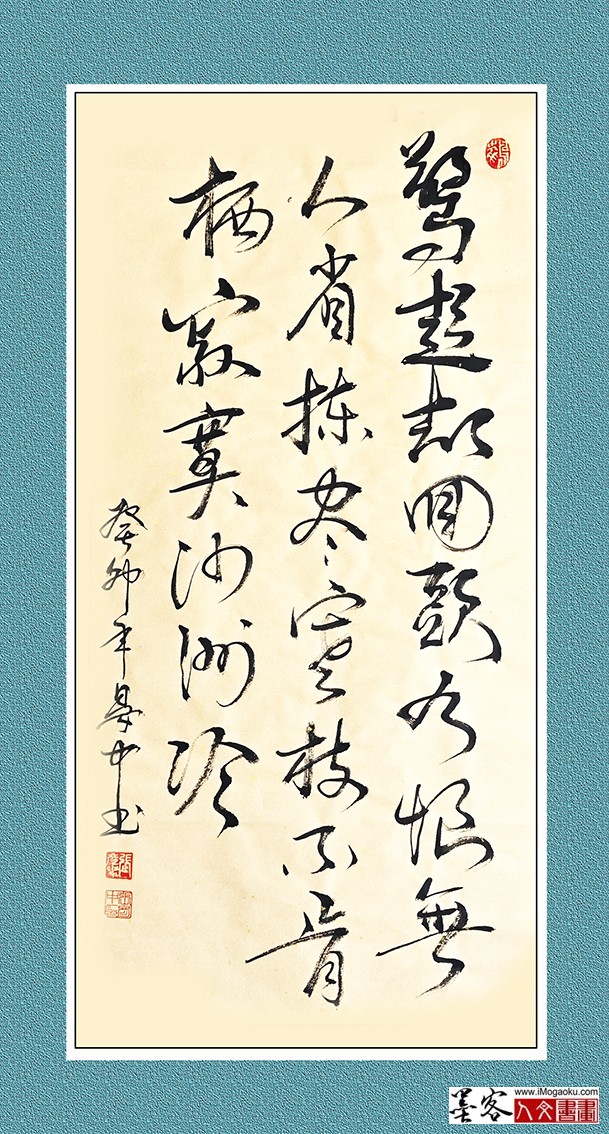 驚起却回頭有恨無
人省揀盡寒枝不肯
栖寂寞沙洲冷
癸卯年书
墨客
www.iMogaoku.com
人文書畫